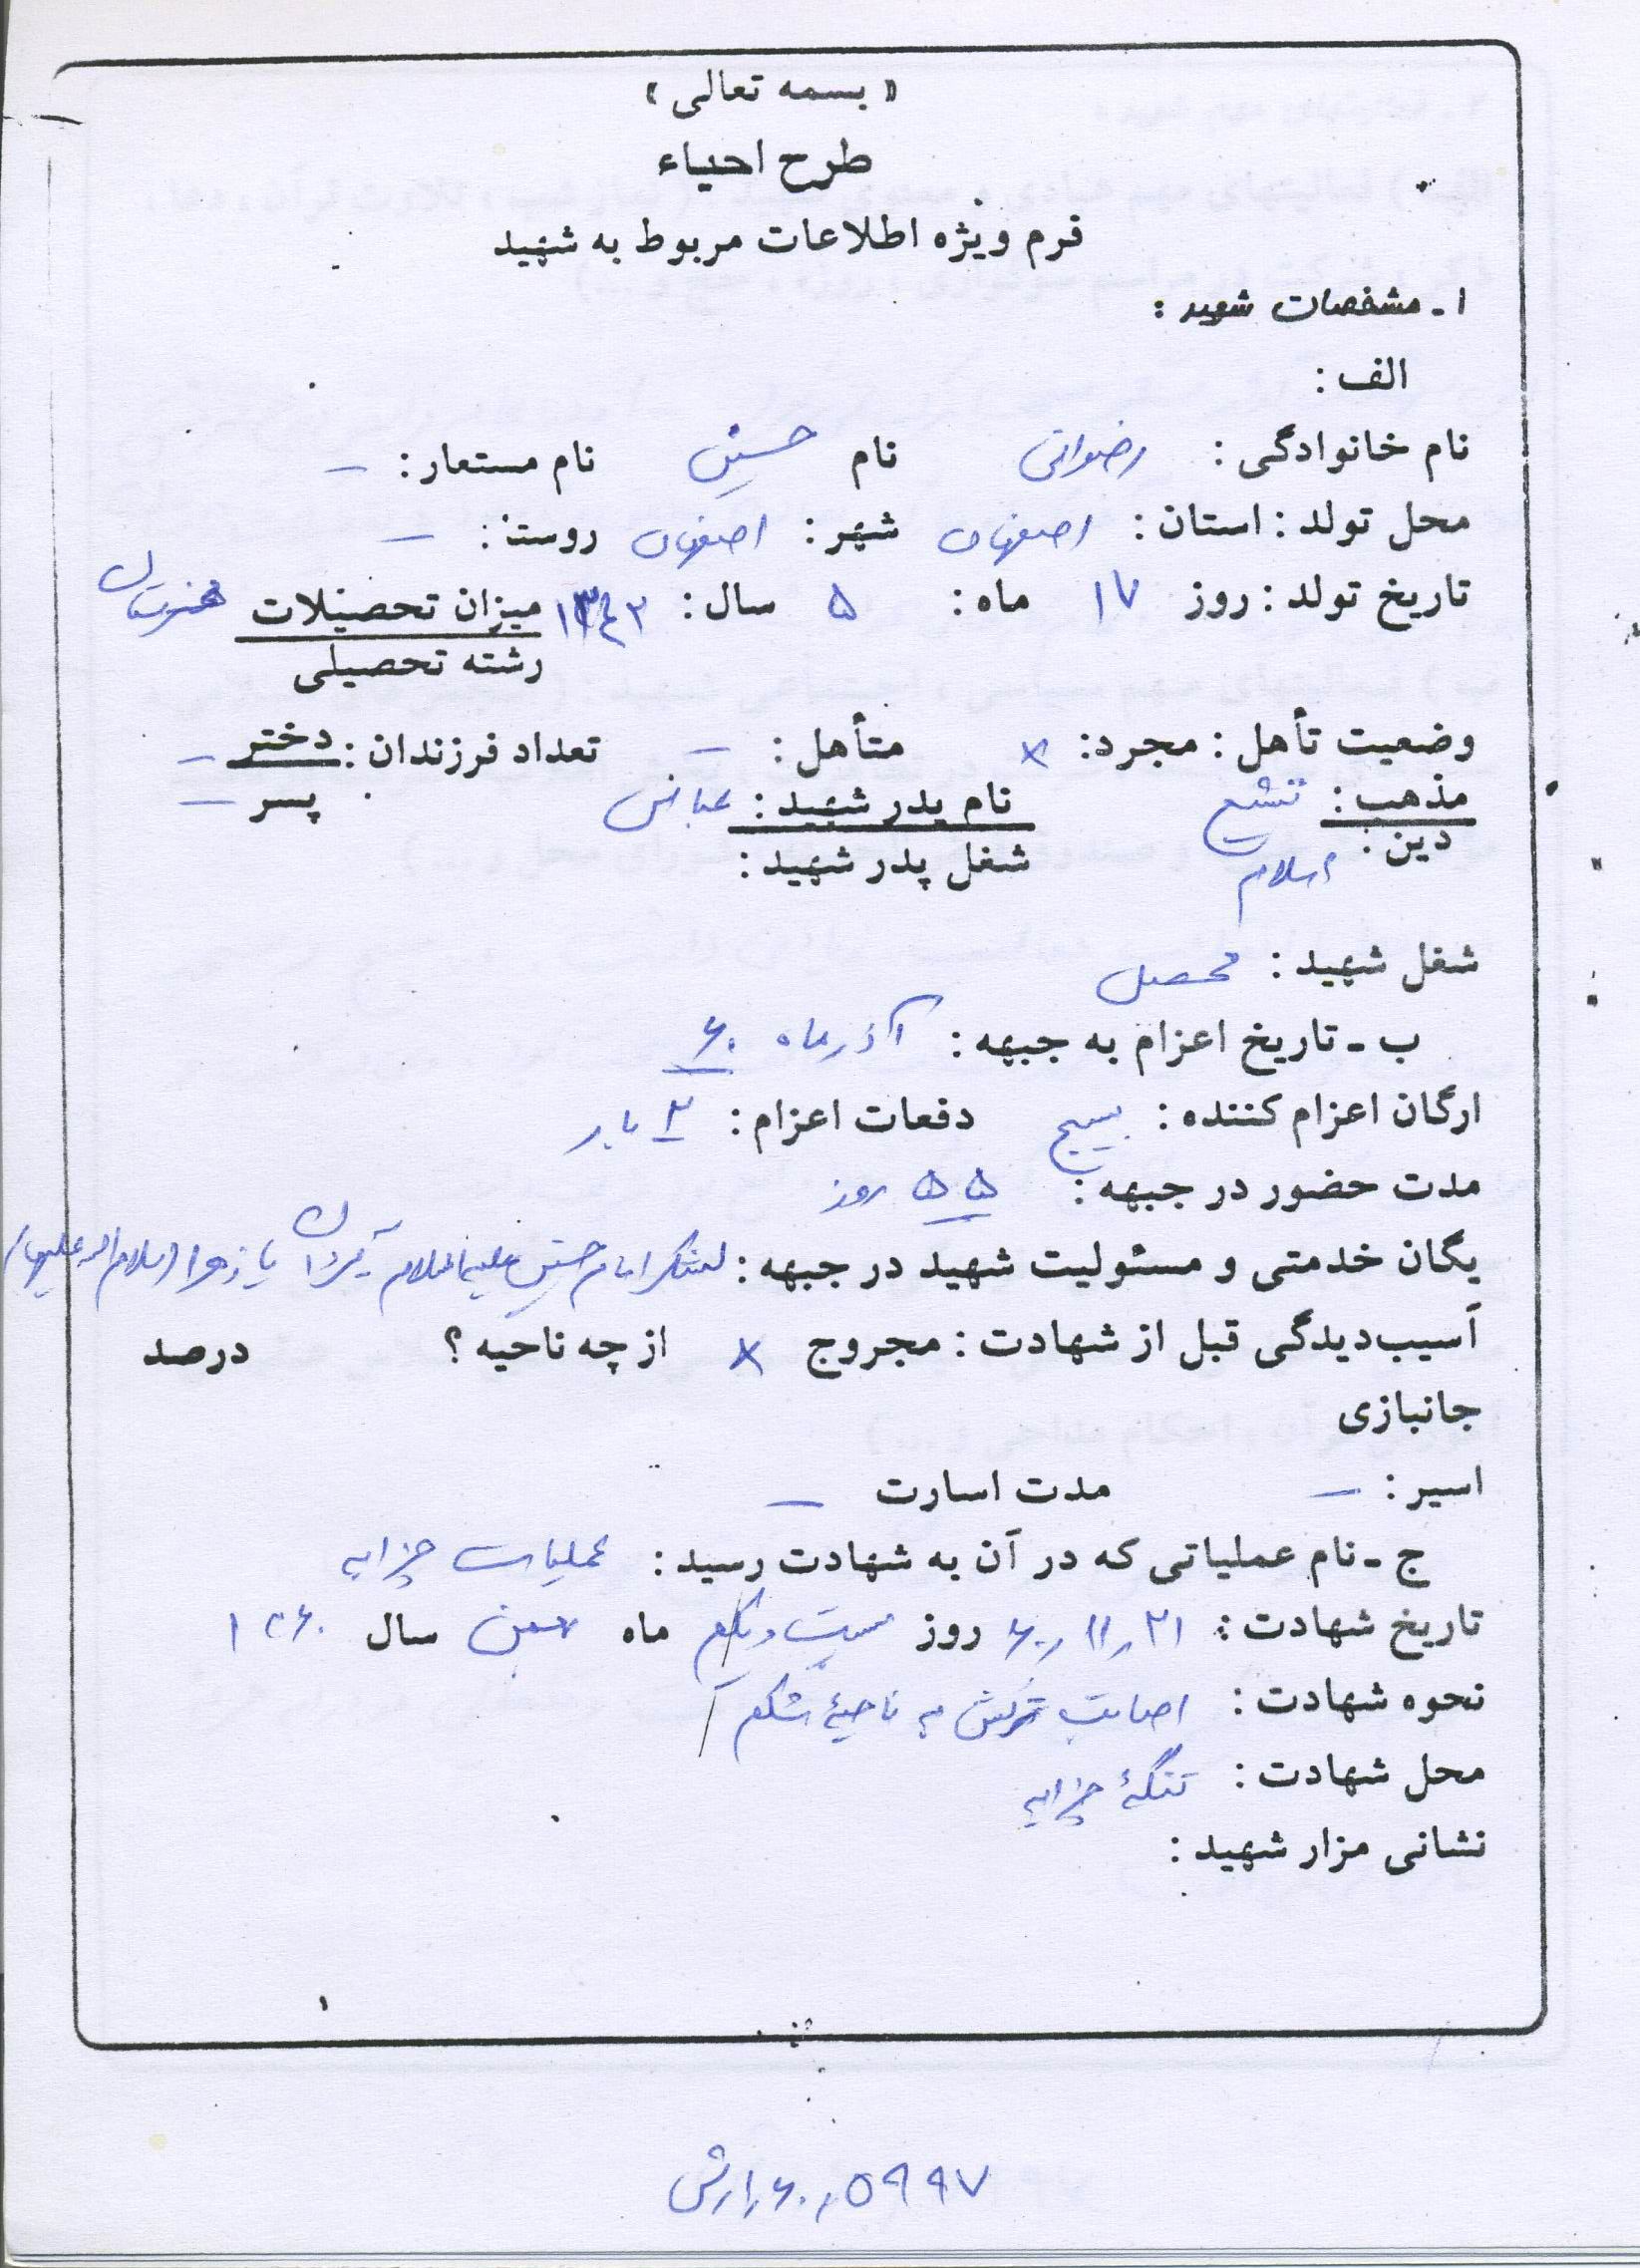 « بسمه تعالی »
طرح احیاء
فرم ویژه اطلاعات مربوط به شهید
۱ ـ مشخصات شهید :
الف :
نام خانوادگی : رضوانی نام حسین نام مستعار : –
محل تولد : استان : اصفهان شهر : اصفهان روستا : –
تاریخ تولد : روز ۱۷ ماه : ۵ سال : ۱۳۴۲ میزان تحصیلات هنرستان
رشته تحصیلی
وضعیت تأهل : مجرد : × متأهل : – تعداد فرزندان : دختر –
مذهب : تشیع نام پدر شهید : عباس پسر –
دین : اسلام شغل پدر شهید :
شغل شهید : محصل
ب ـ تاریخ اعزام به جبهه : آذر ماه ۶۰
ارگان اعزام کننده : بسیج دفعات اعزام : ۲ بار
مدت حضور در جبهه : ۵۵ روز
یگان خدمتی و مسئولیت شهید در جبهه : لشکر امام حسین علیه السلام تیپ یا زهرا (سلام الله علیها)
آسیب‌دیدگی قبل از شهادت : مجروح × از چه ناحیه ؟ درصد
جانبازی
اسیر : – مدت اسارت –
ج ـ نام عملیاتی که در آن به شهادت رسید : عملیات چزابه
تاریخ شهادت : ۲۱ ر ۱۱ ر ۶۰ روز بیست و یکم ماه بهمن سال ۱۳۶۰
نحوه شهادت : اصابت ترکش به ناحیهٔ شکم
محل شهادت : تنگهٔ چزابه
نشانی مزار شهید :
۱
۵۹۹۷ ر ۶۰